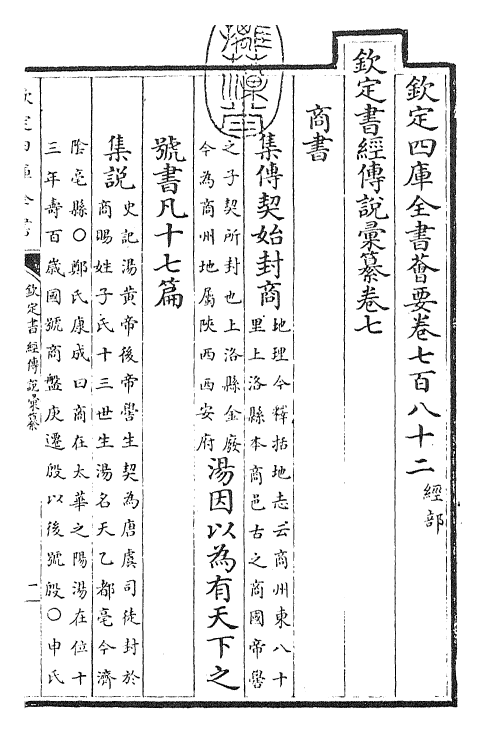 欽定四庫全書薈要卷七百八十二經部
欽定書經傳說彙纂卷七
商書
集傳契始封商地理今釋括地志云商州東八十
里上洛縣本商邑古之商國帝嚳
之子契所封也上洛縣金廢
今為商州地屬陝西西安府湯因以為有天下之
號書凡十七篇
集説史記湯黃帝後帝嚳生契為唐虞司徒封於
商賜姓子氏十三世生湯名天乙都亳今濟
陰亳縣○鄭氏康成曰商在太華之陽湯在位十
三年壽百歲國號商盤庚遷殷以後號殷○申氏
欽定書經傳說彙纂